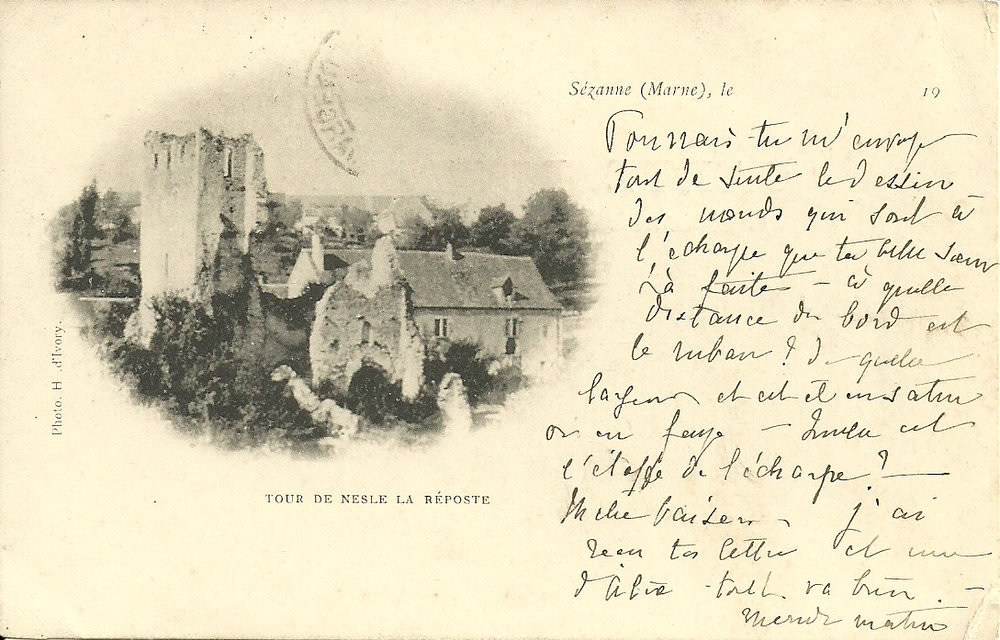 Sézanne (Marne), le 19
Pourrais-tu m'envoyer
tout de suite le dessin
des nœuds qui sont à
l'écharpe que ta belle sœur
a faite – à quelle
distance du bord est
le ruban ? de quelle
largeur et est il en satin
ou en faye – est
l'étoffe de l'écharpe ? –
Mille baisers – j'ai
reçu ta lettre et une
d'Alix tout va bien. –
matin
Photo. H. d'Ivory.
TOUR DE NESLE LA RÉPOSTE